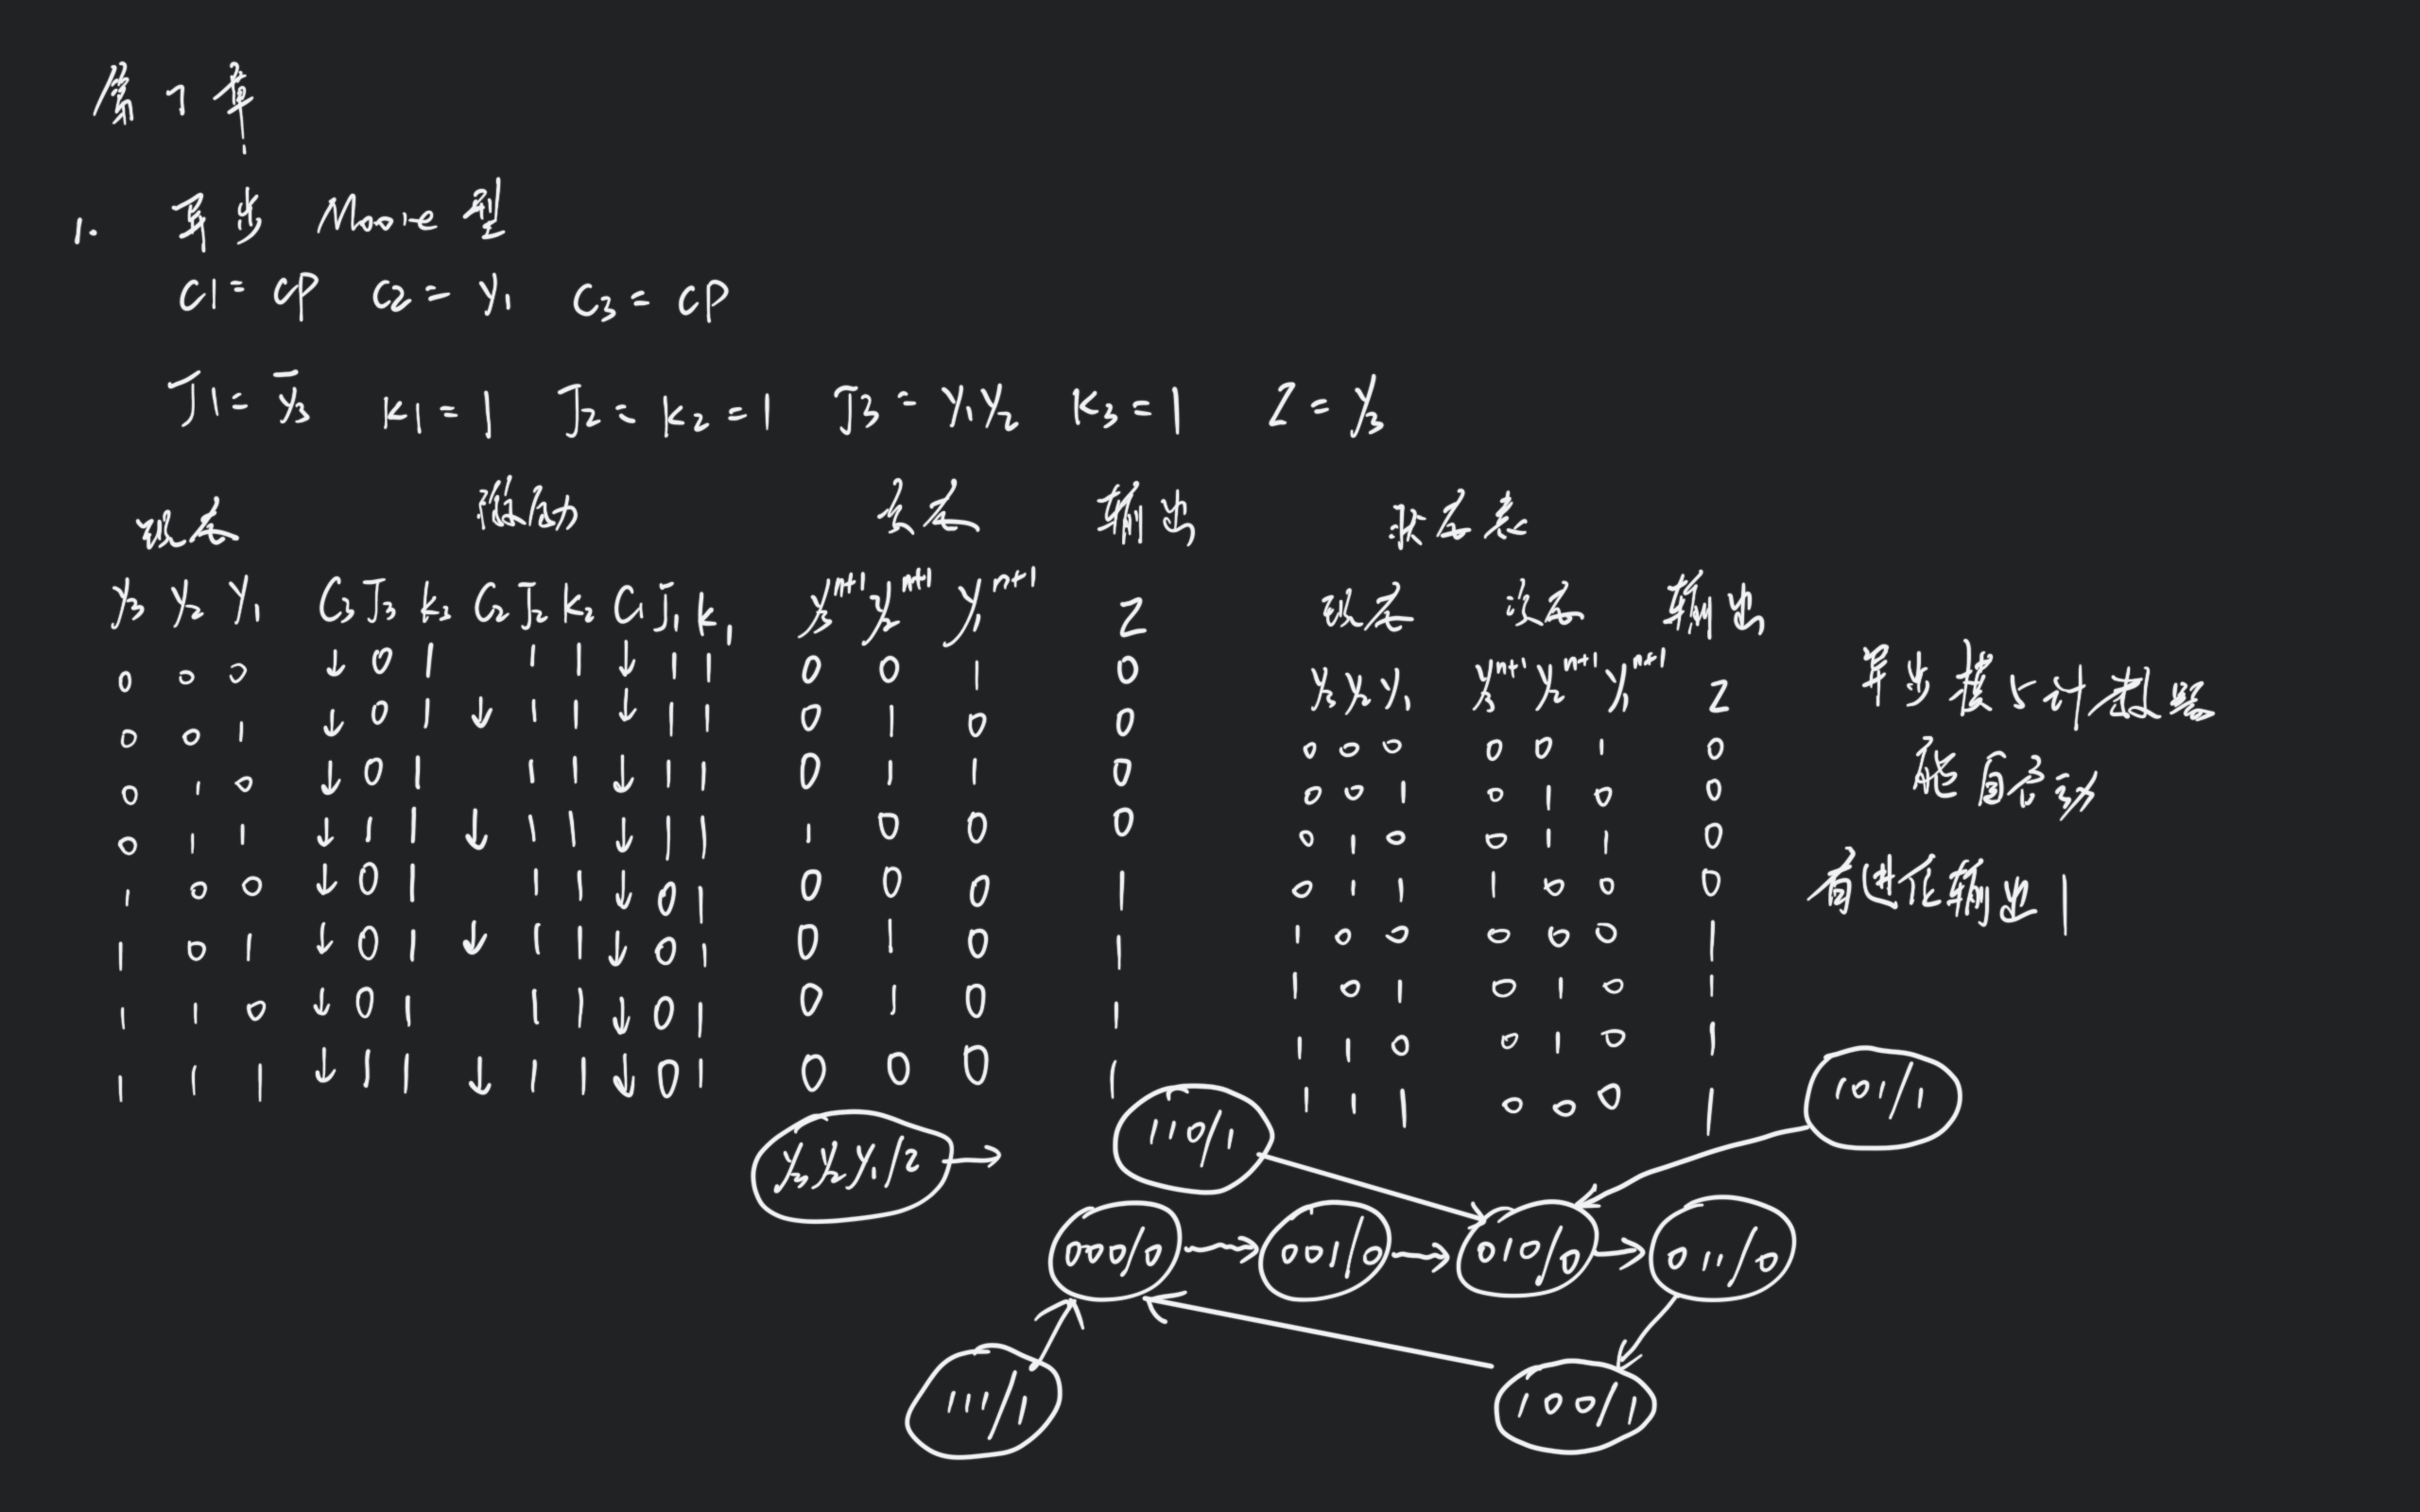 第7章
1. 异步 Moore型
C1=CP C2=y₁ C₃=CP
J1=ȳ₃ K1=1 J₂=K₂=1 J3=y₁y₂ K₃=1 Z=y₃
现态 激励 次态 输出 状态表
y₃ y₂ y₁ C₃ J₃ K₃ C₂ J₂ K₂ C₁ J₁ K₁ y₃ⁿ⁺¹ y₂ⁿ⁺¹ y₁ⁿ⁺¹ Z
0 0 0 ↓ 0 1 1 1 ↓ 1 1 0 0 1 0
0 0 1 ↓ 0 1 ↓ 1 1 ↓ 1 1 0 1 0 0
0 1 0 ↓ 0 1 1 1 ↓ 1 1 0 1 1 0
0 1 1 ↓ 1 1 ↓ 1 1 ↓ 1 1 1 0 0 0
1 0 0 ↓ 0 1 1 1 ↓ 0 1 0 0 0 1
1 0 1 ↓ 0 1 ↓ 1 1 ↓ 0 1 0 1 0 1
1 1 0 ↓ 0 1 1 1 ↓ 0 1 0 1 0 1
1 1 1 ↓ 1 1 ↓ 1 1 ↓ 0 1 0 0 0 1
现态 次态 输出
y₃ y₂ y₁ y₃ⁿ⁺¹ y₂ⁿ⁺¹ y₁ⁿ⁺¹ Z
0 0 0 0 0 1 0
0 0 1 0 1 0 0
0 1 0 0 1 1 0
0 1 1 1 0 0 0
1 0 0 0 0 0 1
1 0 1 0 1 0 1
1 1 0 0 1 0 1
1 1 1 0 0 0 1
异步模5计数器
能自启动
有进位输出1
y₃y₂y₁/Z →
110/1
101/1
000/0 → 001/0 → 010/0 → 011/0
111/1
100/1